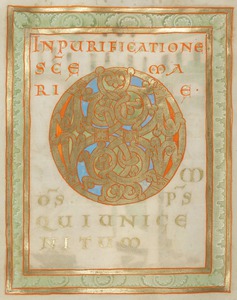 IN PURIFICATIONE
SCE MA
RI E·
O M
DS PS
QUI UNIGE
NITUM